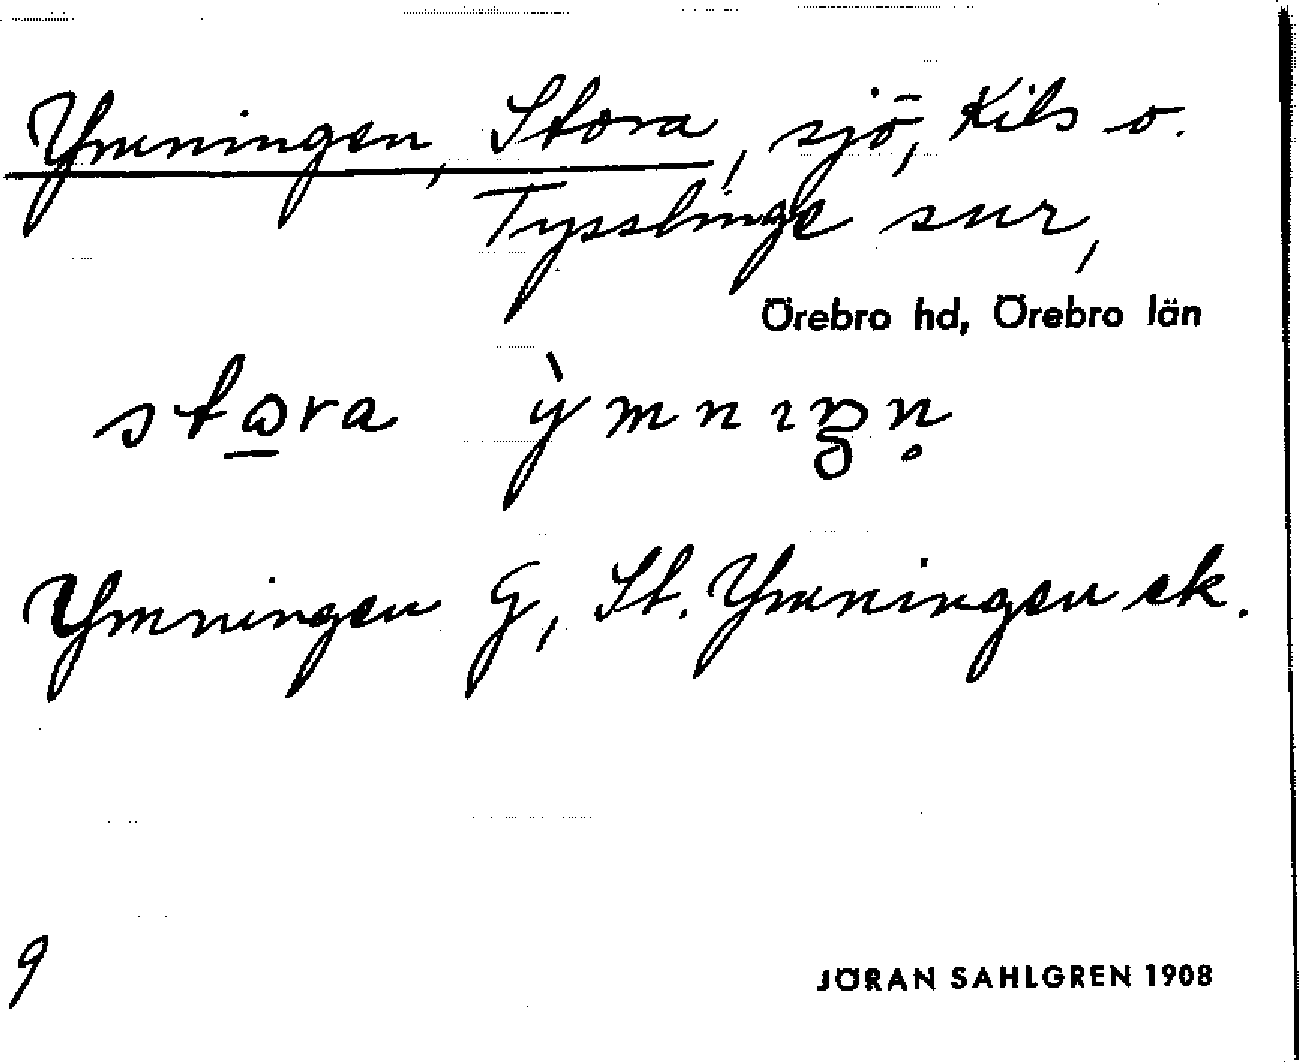 Ymningen, Stora, sjö, Kils o.
Tysslinge snr,
Örebro hd, Örebro län
Ymningen G, St. Ymningen ek.
9
JÖRAN SAHLGREN 1908